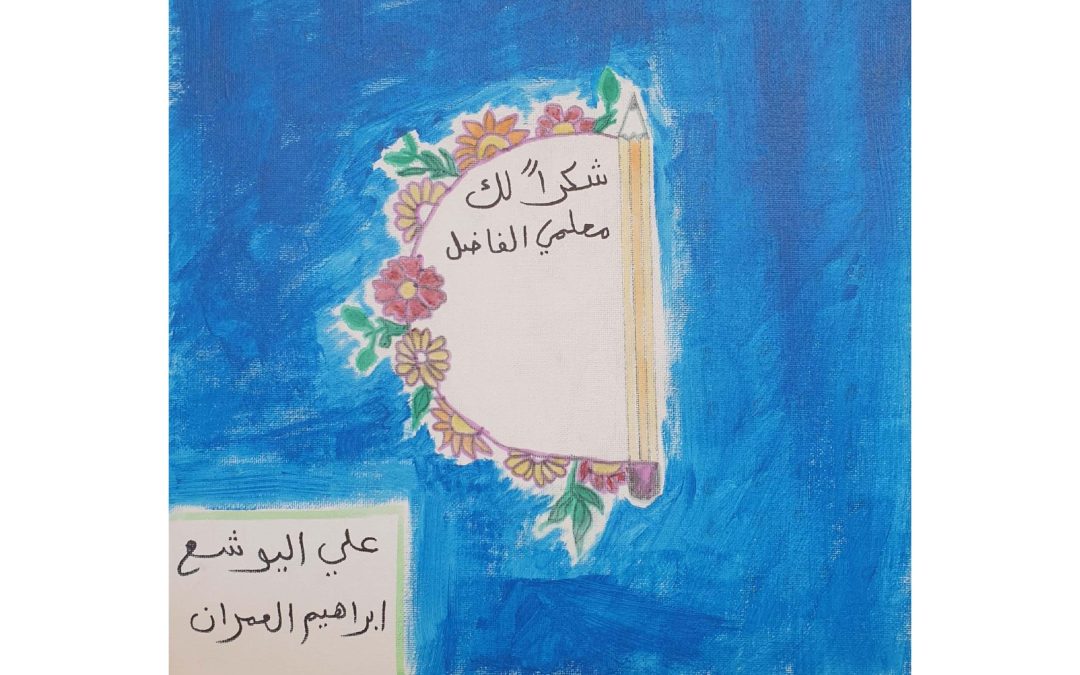 شكراً لك
معلمي الفاضل
علي اليوشع
ابراهيم العمران